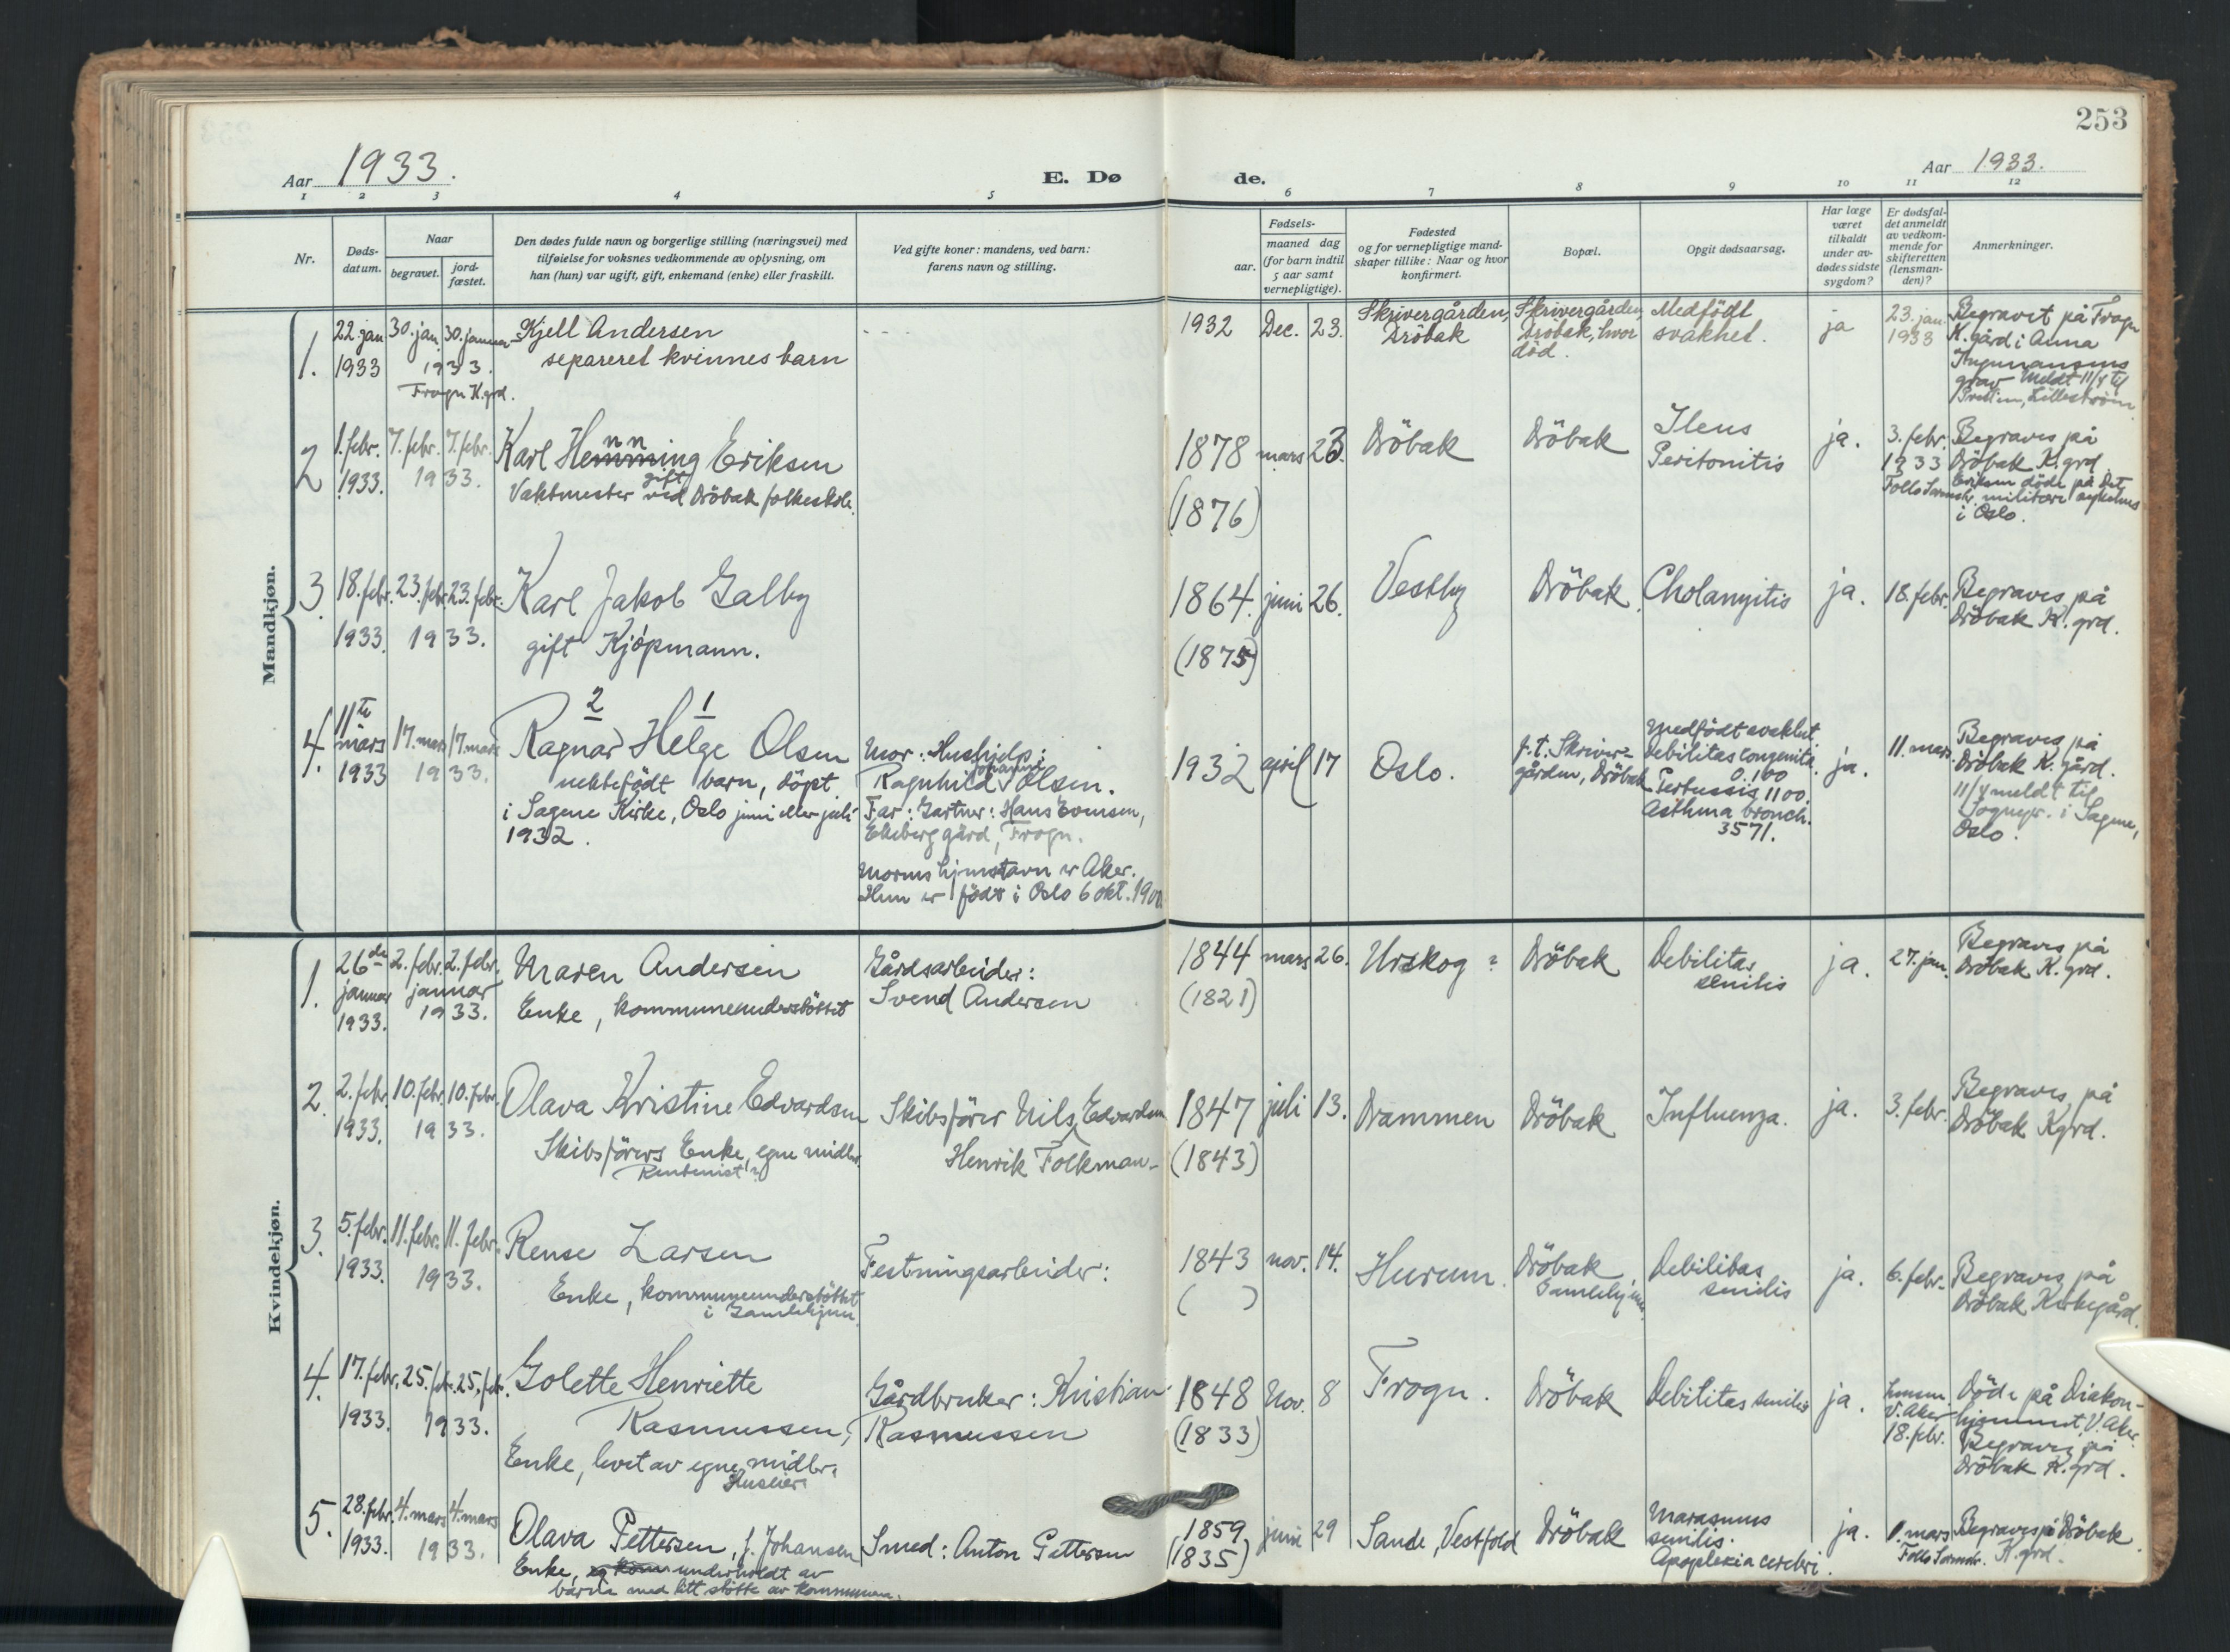 253
Aar 1933.
E. Dø
de.
Aar 1933.
1 2 3 4 5 6 7 8 9 10 11 12
Nr.
Døds-
datum.
Naar
begravet.
jord-
fæstet.
Den dødes fulde navn og borgerlige stilling (næringsvei) med
tilføielse for voksnes vedkommende av oplysning, om
han (hun) var ugift, gift, enkemand (enke) eller fraskilt.
Ved gifte koner: mandens, ved barn:
farens navn og stilling.
Fødsels-
aar.
maaned dag
(for barn indtil
5 aar samt
vernepligtige).
Fødested
og for vernepligtige mand-
skaper tillike: Naar og hvor
konfirmert.
Bopæl.
Opgit dødsaarsag.
Har læge
været
tilkaldt
under av-
dødes sidste
sygdom?
Er dødsfal-
det anmeldt
av vedkom-
mende for
skifteretten
(lensman-
den)?
Anmerkninger.
Mandkjøn.
1.
22. jan
1933
30. jan. 30. januar
1933.
Frogn K.grd.
Kjell Andersen
separeret kvinnes barn
- - -
1932 Dec. 23.
Skrivergården,
Dröbak
Skrivergården,
Dröbak, hvor
död.
Medfödt
svakhet.
ja
23. jan.
1933
Begravet på Frogn
K. gård i Anna
grav Meldt 11/4 til
Lilleström
2
1. febr.
1933.
7. febr. 7. febr.
1933.
Karl Hemming Eriksen
nn
gift
Vaktmester ved Dröbak folkeskole.
1878 mars 23.
(1876)
Dröbak
Dröbak
Ileus
Peritonitis
ja.
3. febr.
1933
Follo Sorenskr.
Begraves på
Dröbak K. grd.
Eriksen döde på Det
militære sykehus
i Oslo.
3
18. febr.
1933.
23. febr. 23. febr.
1933.
Karl Jakob Galby
gift Kjöpmann.
1864. juni 26.
(1875)
Vestby
Dröbak.
Cholangitis
ja.
18. febr.
Begraves på
Dröbak K. grd.
4.
11te
mars
1933
17. mars 17. mars
1933.
2 1
Ragnar Helge Olsen
uektefödt barn, döpt
i Sagene Kirke, Oslo juni eller juli
1932.
Mor: Hushjelp:
Johanne
Ragnhild Olsen.
Far: Gartner: Hans Evensen,
Ekeberg gård, Frogn.
Morens hjemstavn er Aker.
Hun er födt i Oslo 6 okt. 190
1932 april 17
Oslo.
f.t. Skriver-
gården, Dröbak
Medfödt svakhet
Debilitas congenita
0.100
Pertussis 1100.
Asthma bronch.
3571.
ja.
11. mars.
Begraves på
Dröbak K. gård.
11/4 meldt til
Sognepr. i Sagene,
Oslo.
Kvindekjøn.
1.
26de
januar
1933.
2. febr. 2. febr.
januar
1933.
Maren Andersen
Enke, kommuneunderstöttet
Gårdsarbeider:
Svend Andersen
1844 mars 26.
(1821)
Urskog?
Dröbak
Debilitas
senilis
ja.
27. jan.
Begraves på
Dröbak K. grd.
2.
2. febr.
1933.
10. febr. 10. febr.
1933.
Olava Kristine Edvardsen
Skibsförers Enke, egne midler.
Rentenist?
Skibsförer Nils Edvardsen
Henrik Folkman-
1847 juli 13.
(1843)
Drammen
Dröbak
Influenza.
ja.
3. febr.
Begraves på
Dröbak Kgrd.
3.
5. febr.
1933.
11. febr. 11. febr.
1933.
Rense Larsen
Enke, kommuneunderstöttet
i Gamlehjem.
Festningsarbeider:
1843 nov. 14.
( )
Hurum.
Dröbak
Gamlehjem.
Debilitas
senilis
ja.
6. febr.
Begraves på
Dröbak Kirkegård.
4.
17. febr.
1933.
25. febr. 25. febr.
1933.
Golette Henriette
Rasmussen,
Enke, levet av egne midler.
Huseier.
Gårdbruker: Kristian
Rasmussen
1848 Nov. 8
(1833)
Frogn.
Dröbak
Debilitas senilis
ja.
Lensm.
V. Aker
18. febr.
Döde på Diakon-
hjemmet, V. Aker.
Begraves på
Dröbak K. grd.
5.
28. febr.
1933.
4. mars 4. mars
1933.
Olava Pettersen, f. Johansen
Enke, underholdt av
barna med litt stötte av kommunen.
Smed: Anton Pettersen
1859 juni 29
(1835)
Sande, Vestfold
Dröbak
Marasmus
senilis.
Apoplexia cerebri.
ja.
1. mars
Follo Sorenskr.
Begraves på Dröbak
K. grd.